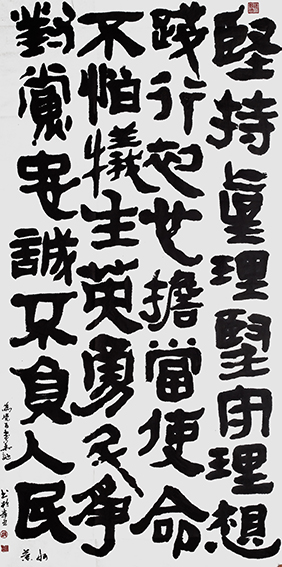 堅持眞理堅守理想
踐行初心擔當使命
不怕犧牲英勇鬥爭
對黨忠誠不負人民